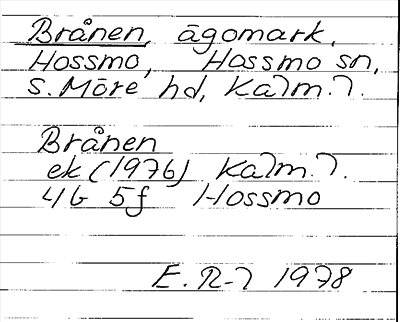 Brånen, ägomark,
Hossmo, Hossmo sn,
S. Möre hd, Kalm. l.
Brånen
ek (1976) Kalm. l.
4G 5f Hossmo
E. R-l 1978